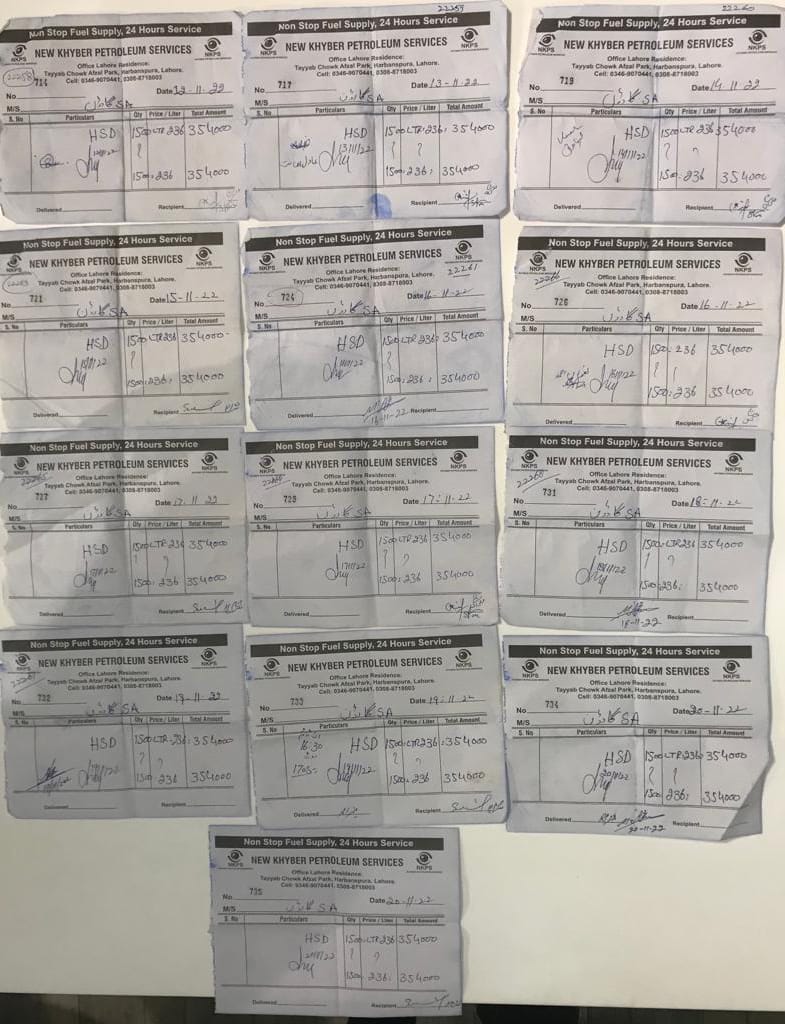 Non Stop Fuel Supply, 24 Hours Service
NKPS NEW KHYBER PETROLEUM SERVICES NKPS
Office Lahore Residence:
Tayyab Chowk Afzal Park, Harbanspura, Lahore.
Cell: 0346-9070441, 0308-8718003
22258
No 714 Date 12-11-22
M/S گارڈن SA
S. No Particulars Qty Price / Liter Total Amount
HSD 1500 LTR 236 354000
1500: 236 354000
Delivered Recipient
22259
Non Stop Fuel Supply, 24 Hours Service
NKPS NEW KHYBER PETROLEUM SERVICES NKPS
Office Lahore Residence:
Tayyab Chowk Afzal Park, Harbanspura, Lahore.
Cell: 0346-9070441, 0308-8718003
No 717 Date 13-11-22
M/S گارڈن SA
S. No Particulars Qty Price / Liter Total Amount
HSD 1500 LTR: 236: 354000
13/11/22
1500: 236: 354000
Delivered Recipient
22260
Non Stop Fuel Supply, 24 Hours Service
NKPS NEW KHYBER PETROLEUM SERVICES NKPS
Office Lahore Residence:
Tayyab Chowk Afzal Park, Harbanspura, Lahore.
Cell: 0346-9070441, 0308-8718003
No 719 Date 14-11-22
M/S گارڈن SA
S. No Particulars Qty Price / Liter Total Amount
HSD 1500 LTR 236 354000
14/11/22
1500: 236 354000
Delivered Recipient
Non Stop Fuel Supply, 24 Hours Service
NKPS NEW KHYBER PETROLEUM SERVICES NKPS
Office Lahore Residence:
Tayyab Chowk Afzal Park, Harbanspura, Lahore.
Cell: 0346-9070441, 0308-8718003
No 721 Date 15-11-22
M/S گارڈن SA
S. No Particulars Qty Price / Liter Total Amount
HSD 1500 LTR 236 354000-
1500: 236: 354000
Delivered Recipient
Non Stop Fuel Supply, 24 Hours Service
NKPS NEW KHYBER PETROLEUM SERVICES NKPS
Office Lahore Residence:
Tayyab Chowk Afzal Park, Harbanspura, Lahore.
Cell: 0346-9070441, 0308-8718003
22261
No 724 Date 16-11-22
M/S گارڈن SA
S. No Particulars Qty Price / Liter Total Amount
HSD 1500 LTR 236 354000
1500: 236: 354000
Delivered Recipient
16-11-22
Non Stop Fuel Supply, 24 Hours Service
NKPS NEW KHYBER PETROLEUM SERVICES NKPS
Office Lahore Residence:
Tayyab Chowk Afzal Park, Harbanspura, Lahore.
Cell: 0346-9070441, 0308-8718003
No 726 Date 16-11-22
M/S گارڈن SA
S. No Particulars Qty Price / Liter Total Amount
HSD 1500: 236 354000
1500: 236 354000
Delivered Recipient
Non Stop Fuel Supply, 24 Hours Service
NKPS NEW KHYBER PETROLEUM SERVICES NKPS
Office Lahore Residence:
Tayyab Chowk Afzal Park, Harbanspura, Lahore.
Cell: 0346-9070441, 0308-8718003
No 727 Date 17-11-22
M/S گارڈن SA
S. No Particulars Qty Price / Liter Total Amount
HSD 1500 LTR 236 354000
1500: 236 354000
Delivered Recipient
Non Stop Fuel Supply, 24 Hours Service
NKPS NEW KHYBER PETROLEUM SERVICES NKPS
Office Lahore Residence:
Tayyab Chowk Afzal Park, Harbanspura, Lahore.
Cell: 0346-9070441, 0308-8718003
No Date 17-11-22
M/S گارڈن SA
S. No Particulars Qty Price / Liter Total Amount
HSD 1500 LTR 236 354000
17/11/22
1500: 236 354000
Delivered Recipient
Non Stop Fuel Supply, 24 Hours Service
NKPS NEW KHYBER PETROLEUM SERVICES NKPS
Office Lahore Residence:
Tayyab Chowk Afzal Park, Harbanspura, Lahore.
Cell: 0346-9070441, 0308-8718003
No 731 Date 18-11-22
M/S گارڈن SA
S. No Particulars Qty Price / Liter Total Amount
HSD 1500 LTR 236 354000
1500: 236: 354000
Delivered Recipient
18-11-22
Non Stop Fuel Supply, 24 Hours Service
NKPS NEW KHYBER PETROLEUM SERVICES NKPS
Office Lahore Residence:
Tayyab Chowk Afzal Park, Harbanspura, Lahore.
Cell: 0346-9070441, 0308-8718003
No 732 Date 19-11-22
M/S گارڈن SA
S. No Particulars Qty Price / Liter Total Amount
HSD 1500 LTR 236: 354000
1500: 236 354000
Delivered Recipient
Non Stop Fuel Supply, 24 Hours Service
NKPS NEW KHYBER PETROLEUM SERVICES NKPS
Office Lahore Residence:
Tayyab Chowk Afzal Park, Harbanspura, Lahore.
Cell: 0346-9070441, 0308-8718003
No 733 Date 19-11-22
M/S گارڈن SA
S. No Particulars Qty Price / Liter Total Amount
16:30 HSD 1500 LTR 236: 354000
1705- 19/11/22
1500: 236 354000
Delivered Recipient
Non Stop Fuel Supply, 24 Hours Service
NKPS NEW KHYBER PETROLEUM SERVICES NKPS
Office Lahore Residence:
Tayyab Chowk Afzal Park, Harbanspura, Lahore.
Cell: 0346-9070441, 0308-8718003
No 734 Date 20-11-22
M/S گارڈن SA
S. No Particulars Qty Price / Liter Total Amount
HSD 1500 LTR 236: 354000
20/11/22
1500 236: 354000
Delivered Recipient
20-11-22
Non Stop Fuel Supply, 24 Hours Service
NKPS NEW KHYBER PETROLEUM SERVICES NKPS
Office Lahore Residence:
Tayyab Chowk Afzal Park, Harbanspura, Lahore.
Cell: 0346-9070441, 0308-8718003
No 735 Date 20-11-22
M/S گارڈن SA
S. No Particulars Qty Price / Liter Total Amount
HSD 1500 LTR 236 354000
1500 236: 354000
Delivered Recipient